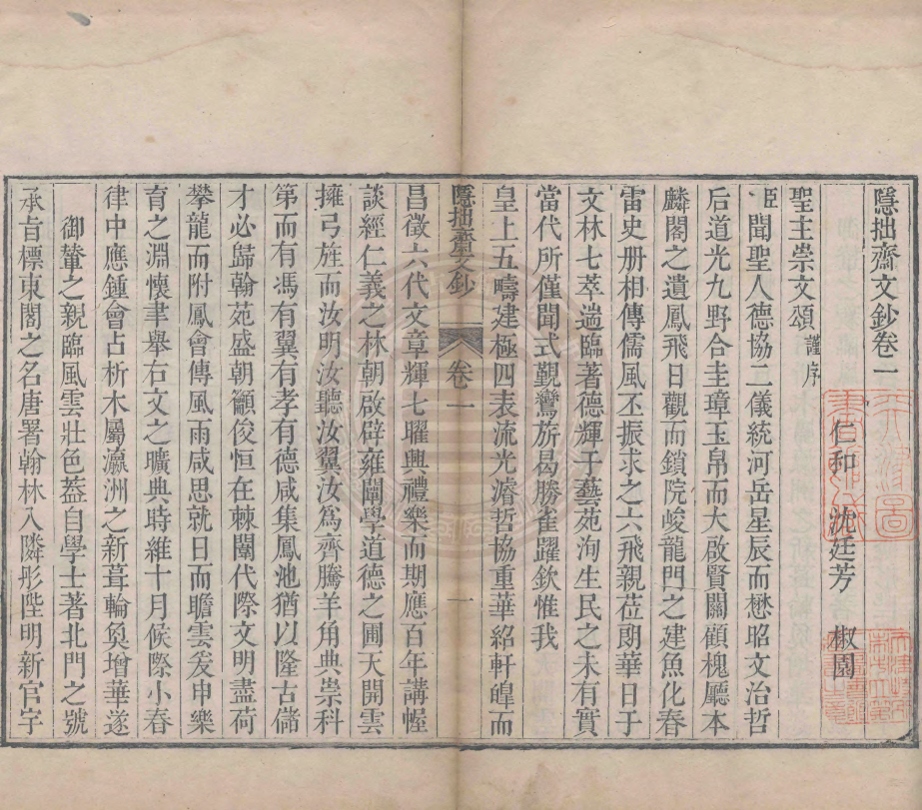 隱拙齋文鈔卷一
仁和 沈廷芳 椒園
聖主崇文頌謹序
臣聞聖人德協二儀統河岳星辰而懋昭文治哲
后道光九野合圭璋玉帛而大啟賢關顧槐廳本
麟閣之遺鳳飛日觀而鎖院峻龍門之建魚化春
雷史册相傳儒風丕振求之六飛親莅朗華日于
文林七萃遄臨著德輝于藝苑洵生民之未有實
當代所僅聞式觀鸞旂曷勝雀躍欽惟我
皇上五疇建極四表流光濬哲協重華紹軒皥而
隱拙齋文鈔 卷一 一
昌徵六代文章輝七曜興禮樂而期應百年講幄
談經仁義之林朝啟辟雍闡學道德之圃天開雲
擁弓旌而汝明汝聽汝翼汝爲齊騰羊角典崇科
第而有馮有翼有孝有德咸集鳳池猶以隆古儲
才必歸翰苑盛朝籲俊恒在棘闈代際文明盡荷
攀龍而附鳳會傳風雨咸思就日而瞻雲爰申樂
育之淵懷聿舉右文之曠典時維十月候際小春
律中應鍾會占析木屬瀛洲之新葺輪奐增華遂
御輦之親臨風雲壯色蓋自學士著北門之號
承旨標東閣之名唐署翰林入隣彤陛明新官字